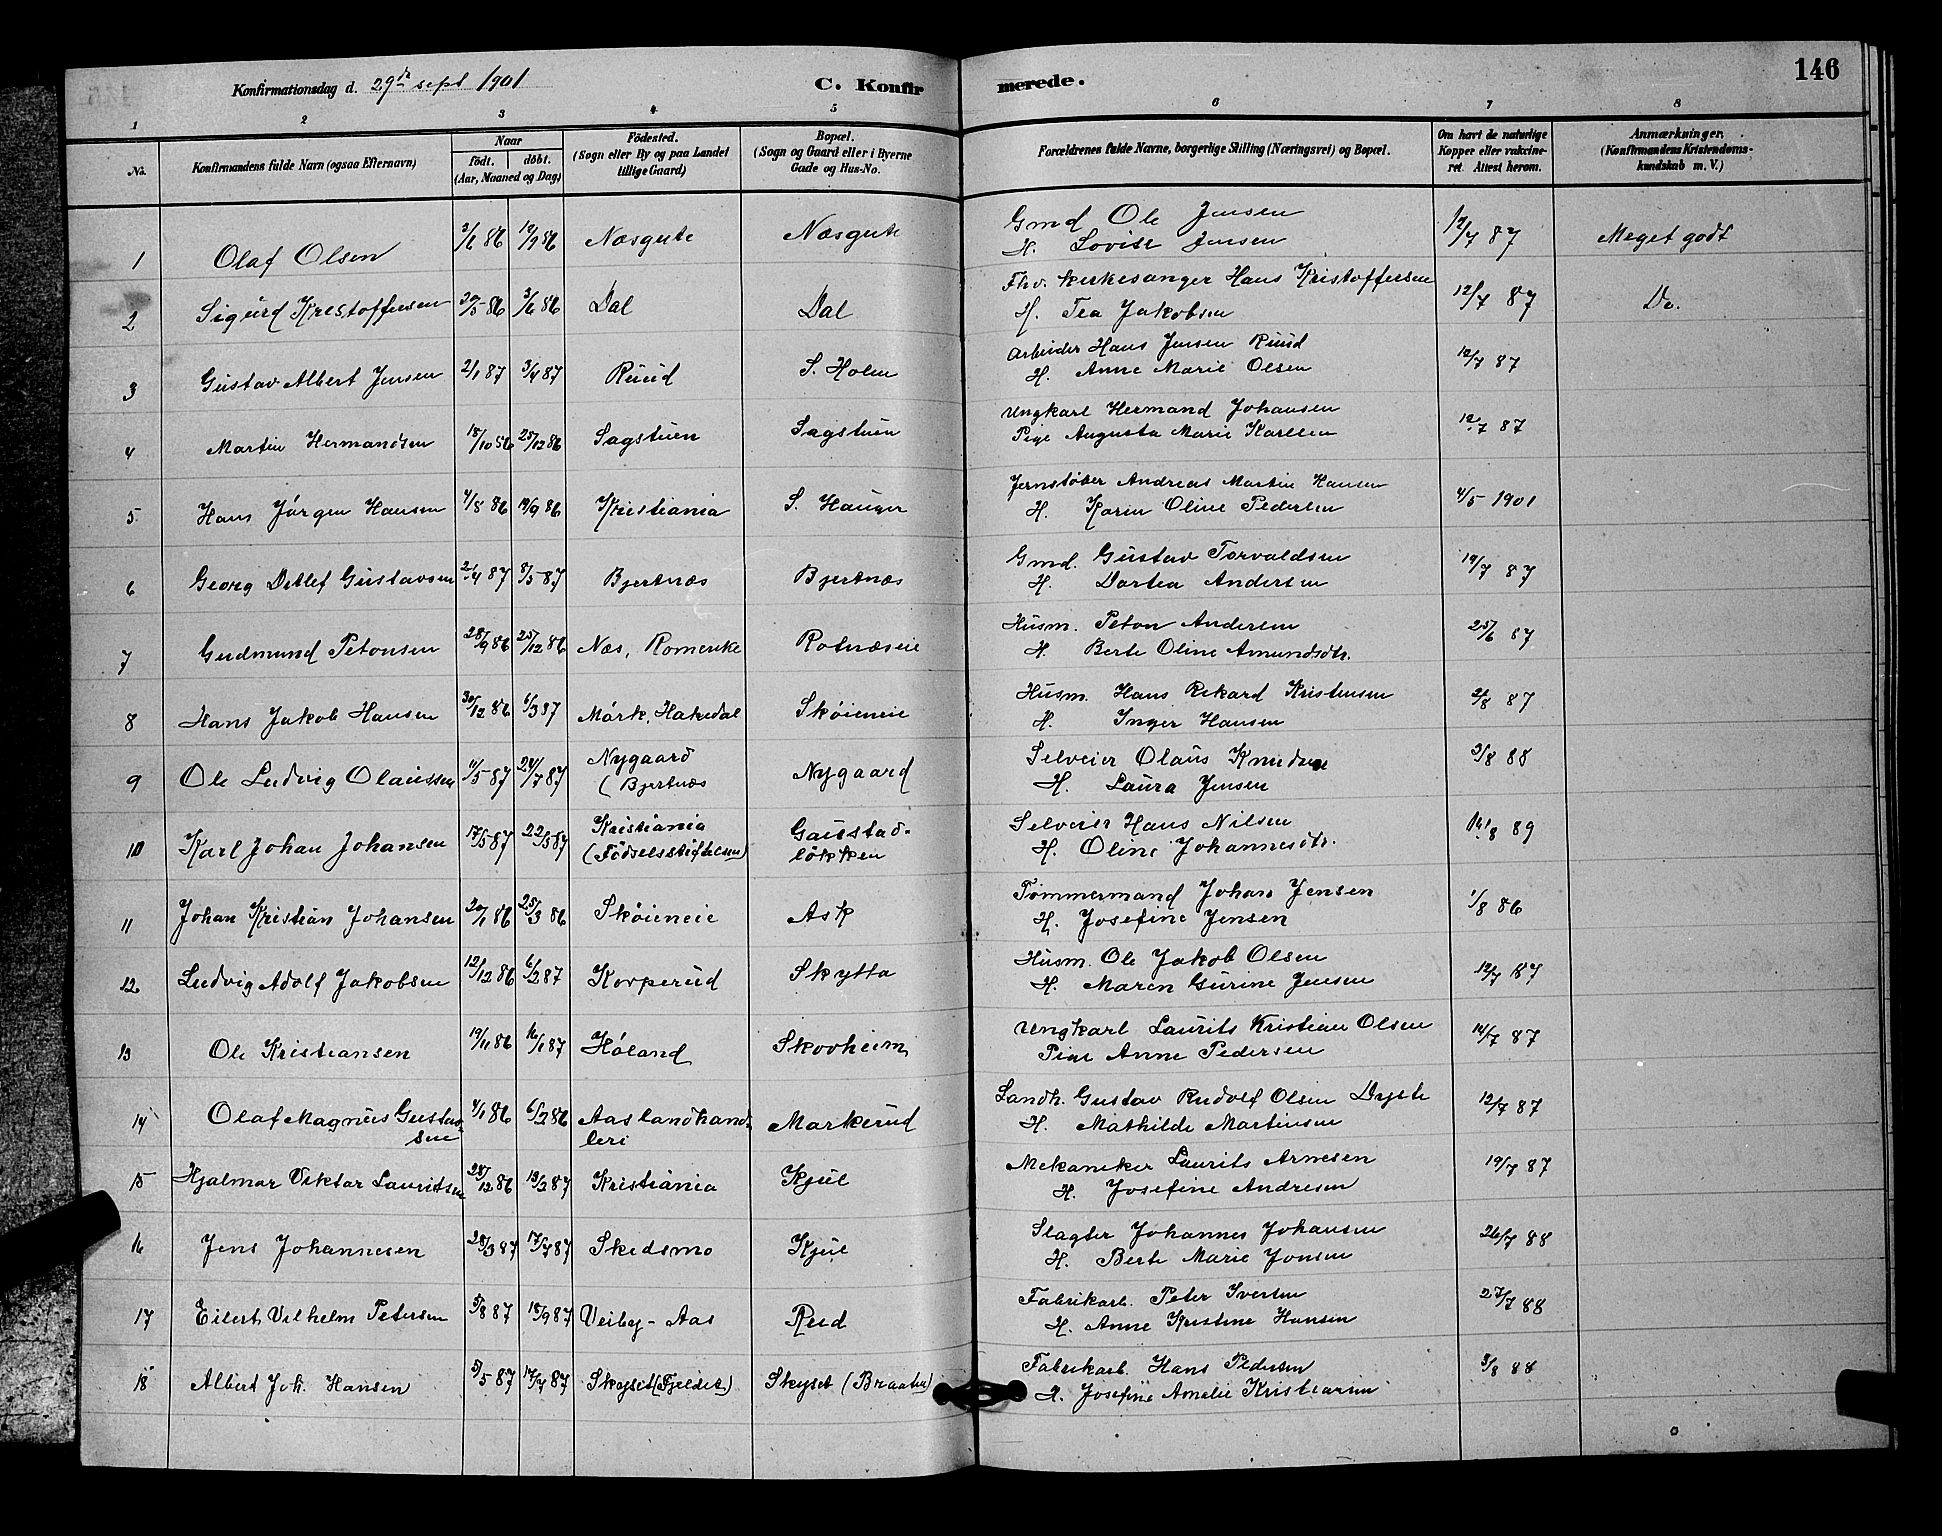 146
Konfirmationsdag d. 29de sept 1901 C. Konfirmerede.
1 2 3 4 5 6 7 8
No. Konfirmandens fulde Navn (ogsaa Efternavn) Naar født. døbt. (Aar, Maaned og Dag) Fødested. (Sogn eller By og paa Landet tillige Gaard) Bopæl. (Sogn og Gaard eller i Byerne Gade og Hus-No. Forældrenes fulde Navne, borgerlige Stilling (Næringsvei) og Bopæl. Om havt de naturlige Kopper eller vaccineret. Attest herom. Anmærkninger. (Konfirmandens Kristendomskundskab m. V.)
1 Olaf Olsen 2/6 86 12/9 86 Næsgute Næsgute Gmd Ole Jensen 12/7 87 Meget godt
H. Lovise Jensen
2 Sigurd Kristoffersen 20/5 86 3/6 86 Dal Dal Fhv. kirkesanger Hans Kristoffersen 12/7 87 Do.
H. Tea Jakobsen
3 Gustav Albert Jensen 2/1 87 3/4 87 Ruud S. Holm Arbeider Hans Jensen Ruud 12/7 87
H. Anne Marie Olsen
4 Martin Hermandsen 18/10 86 25/12 86 Sagstuen Sagstuen Ungkarl Hermand Johansen 12/7 87
Pige Augusta Marie Karlsen
5 Hans Jørgen Hansen 4/8 86 19/9 86 Kristiania S. Hauger Jernstøber Andreas Martin Hansen 4/5 1901
H. Karen Oline Pedersen
6 Georg Detlef Gustavsen 2/4 87 8/5 87 Bjertnæs Bjertnæs Gmd. Gustav Torvaldsen 19/7 87
H. Dortea Andersen
7 Gudmund Petonsen 28/9 86 25/12 86 Næs, Romerike Rotnæseie Husm. Peton Andersen 25/6 87
H. Berte Oline Amundsdtr.
8 Hans Jakob Hansen 30/12 86 6/3 87 Mørk, Hakedal Skøieneie Husm. Hans Rikard Kristensen 2/8 87
H. Inger Hansen
9 Ole Ludvig Olaussen 11/5 87 24/7 87 Nygaard (Bjertnæs Nygaard Selveier Olaus Knudsen 3/8 88
H. Laura Jensen
10 Karl Johan Johansen 17/5 87 22/5 87 Kristiania (Fødselsstiftelsen) Gaustad-løkken Selveier Hans Nilsen 14/8 89
H. Oline Johannesdtr.
11 Johan Kristian Johansen 20/1 86 25/3 86 Skøieneie Ask Tømmermand Johan Jensen 1/8 86
H. Josefine Jensen
12 Ludvig Adolf Jakobsen 12/12 86 6/2 87 Korperud Skytta Husm. Ole Jakob Olsen 12/7 87
H. Maren Gurine Jensen
13 Ole Kristiansen 19/11 86 16/1 87 Høland Skovheim Ungkarl Laurits Kristian Olsen 14/7 87
Pige Anne Pedersen
14 Olaf Magnus Gustavsen 4/1 86 6/2 86 Aas landhandleri Markerud Landh. Gustav Rudolf Olsen Dyste 12/7 87
H. Mathilde Martinsen
15 Hjalmar Viktor Lauritsen 28/12 86 13/2 87 Kristiania Kjul Mekaniker Laurits Arnesen 19/7 87
H. Josefine Andresen
16 Jens Johannesen 28/3 87 17/7 87 Skedsmo Kjul Slagter Johannes Johansen 26/7 88
H. Berte Marie Jonsen
17 Eilert Vilhelm Petersen 5/8 87 18/9 87 Veiby - Aas Rud Fabrikarb. Peter Iversen 27/7 88
H. Anne Kristine Hansen
18 Albert Joh. Hansen 5/5 87 17/7 87 Skyset (Fjeldet) Skyset (Braaten) Fabrikarb. Hans Pedersen 3/8 88
H. Josefine Amalie